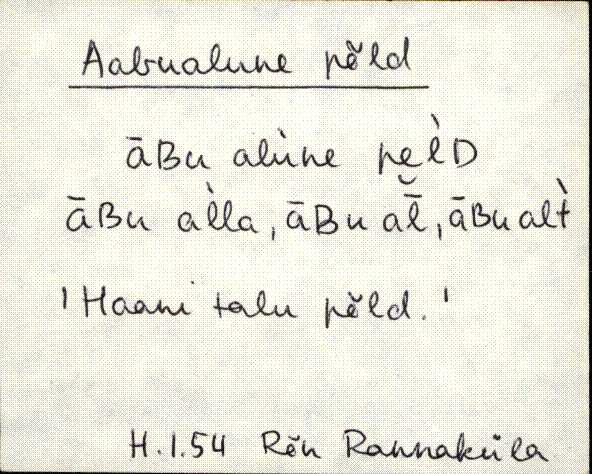 Aabualune põld
āBu alùne pe̮l̀D
āBu al̀la, āBu al̄̆, āBu alt̀
'Haani talu põld.'
H.1.54 Rõn Rannaküla